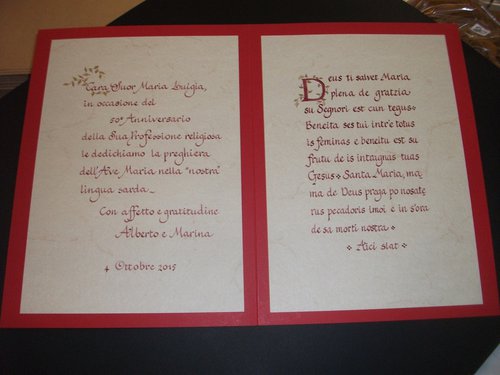 Cara Suor Maria Luigia,
in occasione del
50° Anniversario
della Sua Professione religiosa
le dedichiamo la preghiera
dell'Ave Maria nella "nostra"
lingua sarda_
Con affetto e gratitudine
Alberto e Marina
4 Ottobre 2015
Deus ti salvet Maria
plena de gratzia
su Segnori est cun tegus
Beneita ses tui intr'e totus
is feminas e beneitu est su
frutu de is intraignas tuas
Gesus Santa Maria, ma
ma de Deus praga po nosate
rus pecadoris imoi e in s'ora
de sa morti nostra
Aici siat